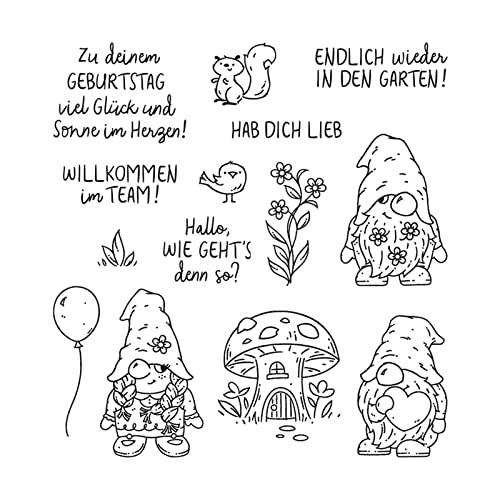 Zu deinem
GEBURTSTAG
viel Glück und
Sonne im Herzen!
ENDLICH wieder
IN DEN GARTEN!
HAB DICH LIEB
WILLKOMMEN
im TEAM!
Hallo,
WIE GEHT'S
denn so?